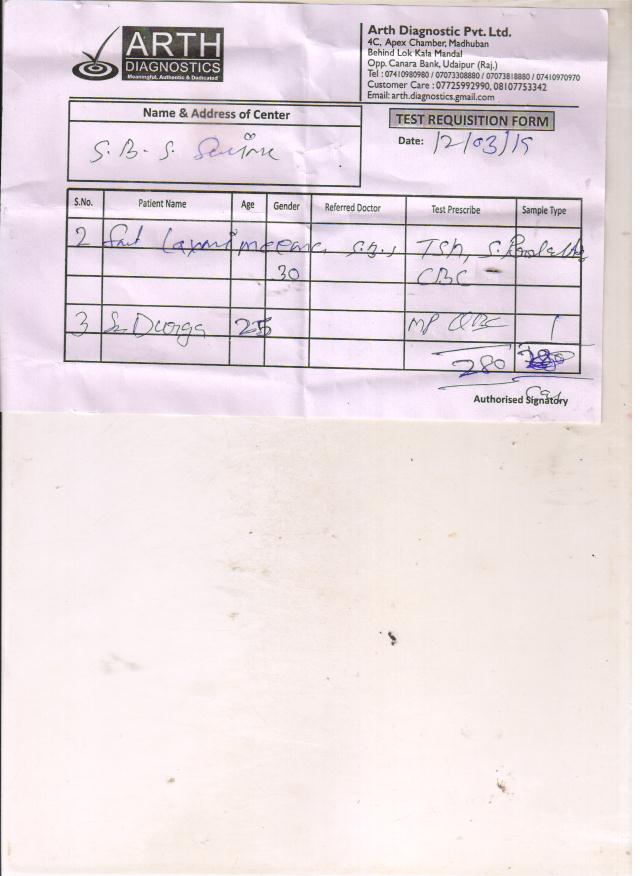 ARTH
DIAGNOSTICS
Meaningful, Authentic & Dedicated
Arth Diagnostic Pvt. Ltd.
4C, Apex Chamber, Madhuban
Behind Lok Kala Mandal
Opp. Canara Bank, Udaipur (Raj.)
Tel : 07410980980 / 07073308880 / 07073818880 / 07410970970
Customer Care : 07725992990, 08107753342
Email: arth.diagnostics.gmail.com
Name & Address of Center
TEST REQUISITION FORM
S. B. S.
Date: 12/03/15
S.No. Patient Name Age Gender Referred Doctor Test Prescribe Sample Type
2 Smt Laxmi meena S.B.S TSH, S.
30 CBC
3 Durga 25 MP CBC 1
280
Authorised Signatory